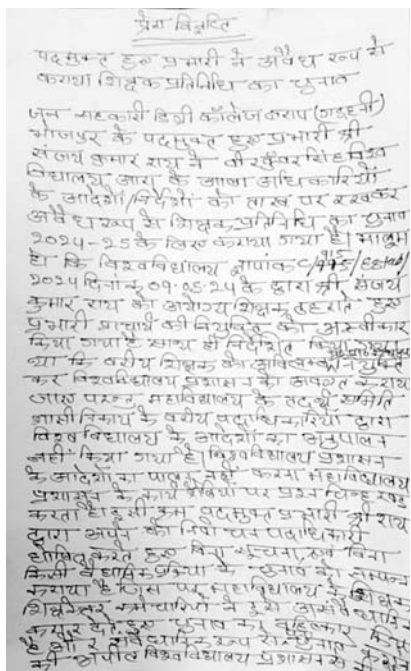 प्रेस विज्ञप्ति
पदमुक्त हुए प्रभारी ने अवैध रूप से
कराया शिक्षक प्रतिनिधि का चुनाव
जन सहकारी डिग्री कॉलेज बराप (गड़हनी)
भोजपुर के पदमुक्त हुए प्रभारी श्री
संजय कुमार राय ने वीर कुँवर सिंह विश्व
विद्यालय आरा के आला अधिकारियों
के आदेशों/निर्देशों को ताख पर रखकर
अवैध रूप से शिक्षक प्रतिनिधि का चुनाव
2024-25 के लिए कराया गया है। मालूम
है कि विश्वविद्यालय ज्ञापांक
2024 दिनांक 09.05.24 के द्वारा श्री संजय
कुमार राय को अयोग्य शिक्षक ठहराते हुए
प्रभारी प्राचार्य की नियुक्ति को अस्वीकार
किया गया है साथ ही निर्देशित किया गया
था कि वरीय शिक्षक को नियुक्त
कर विश्वविद्यालय प्रशासन को अवगत कराया
जाए परन्तु महाविद्यालय के तदर्थ समिति
शासी निकाय के वरीय पदाधिकारियों द्वारा
विश्वविद्यालय के आदेशों का अनुपालन
नहीं किया गया है। विश्वविद्यालय प्रशासन
के आदेशों का पालन नहीं करना महाविद्यालय
प्रशासन के कार्य शैलियों पर प्रश्न चिन्ह खड़ा
करता है। इसी क्रम पदमुक्त प्रभारी श्री राय
द्वारा अपने को निर्वाचन पदाधिकारी
घोषित करते हुए बिना सूचना, एवं बिना
किसी वैधानिक प्रक्रिया के चुनाव को सम्पन्न
कराया है जिस पर महाविद्यालय के शिक्षक
शिक्षकेत्तर कर्मचारियों ने इसे असंवैधानिक
करार देते हुए चुनाव का बहिष्कार किया
है और संवैधानिक रूप से चुनाव कराने
की अपील विश्वविद्यालय प्रशासन से